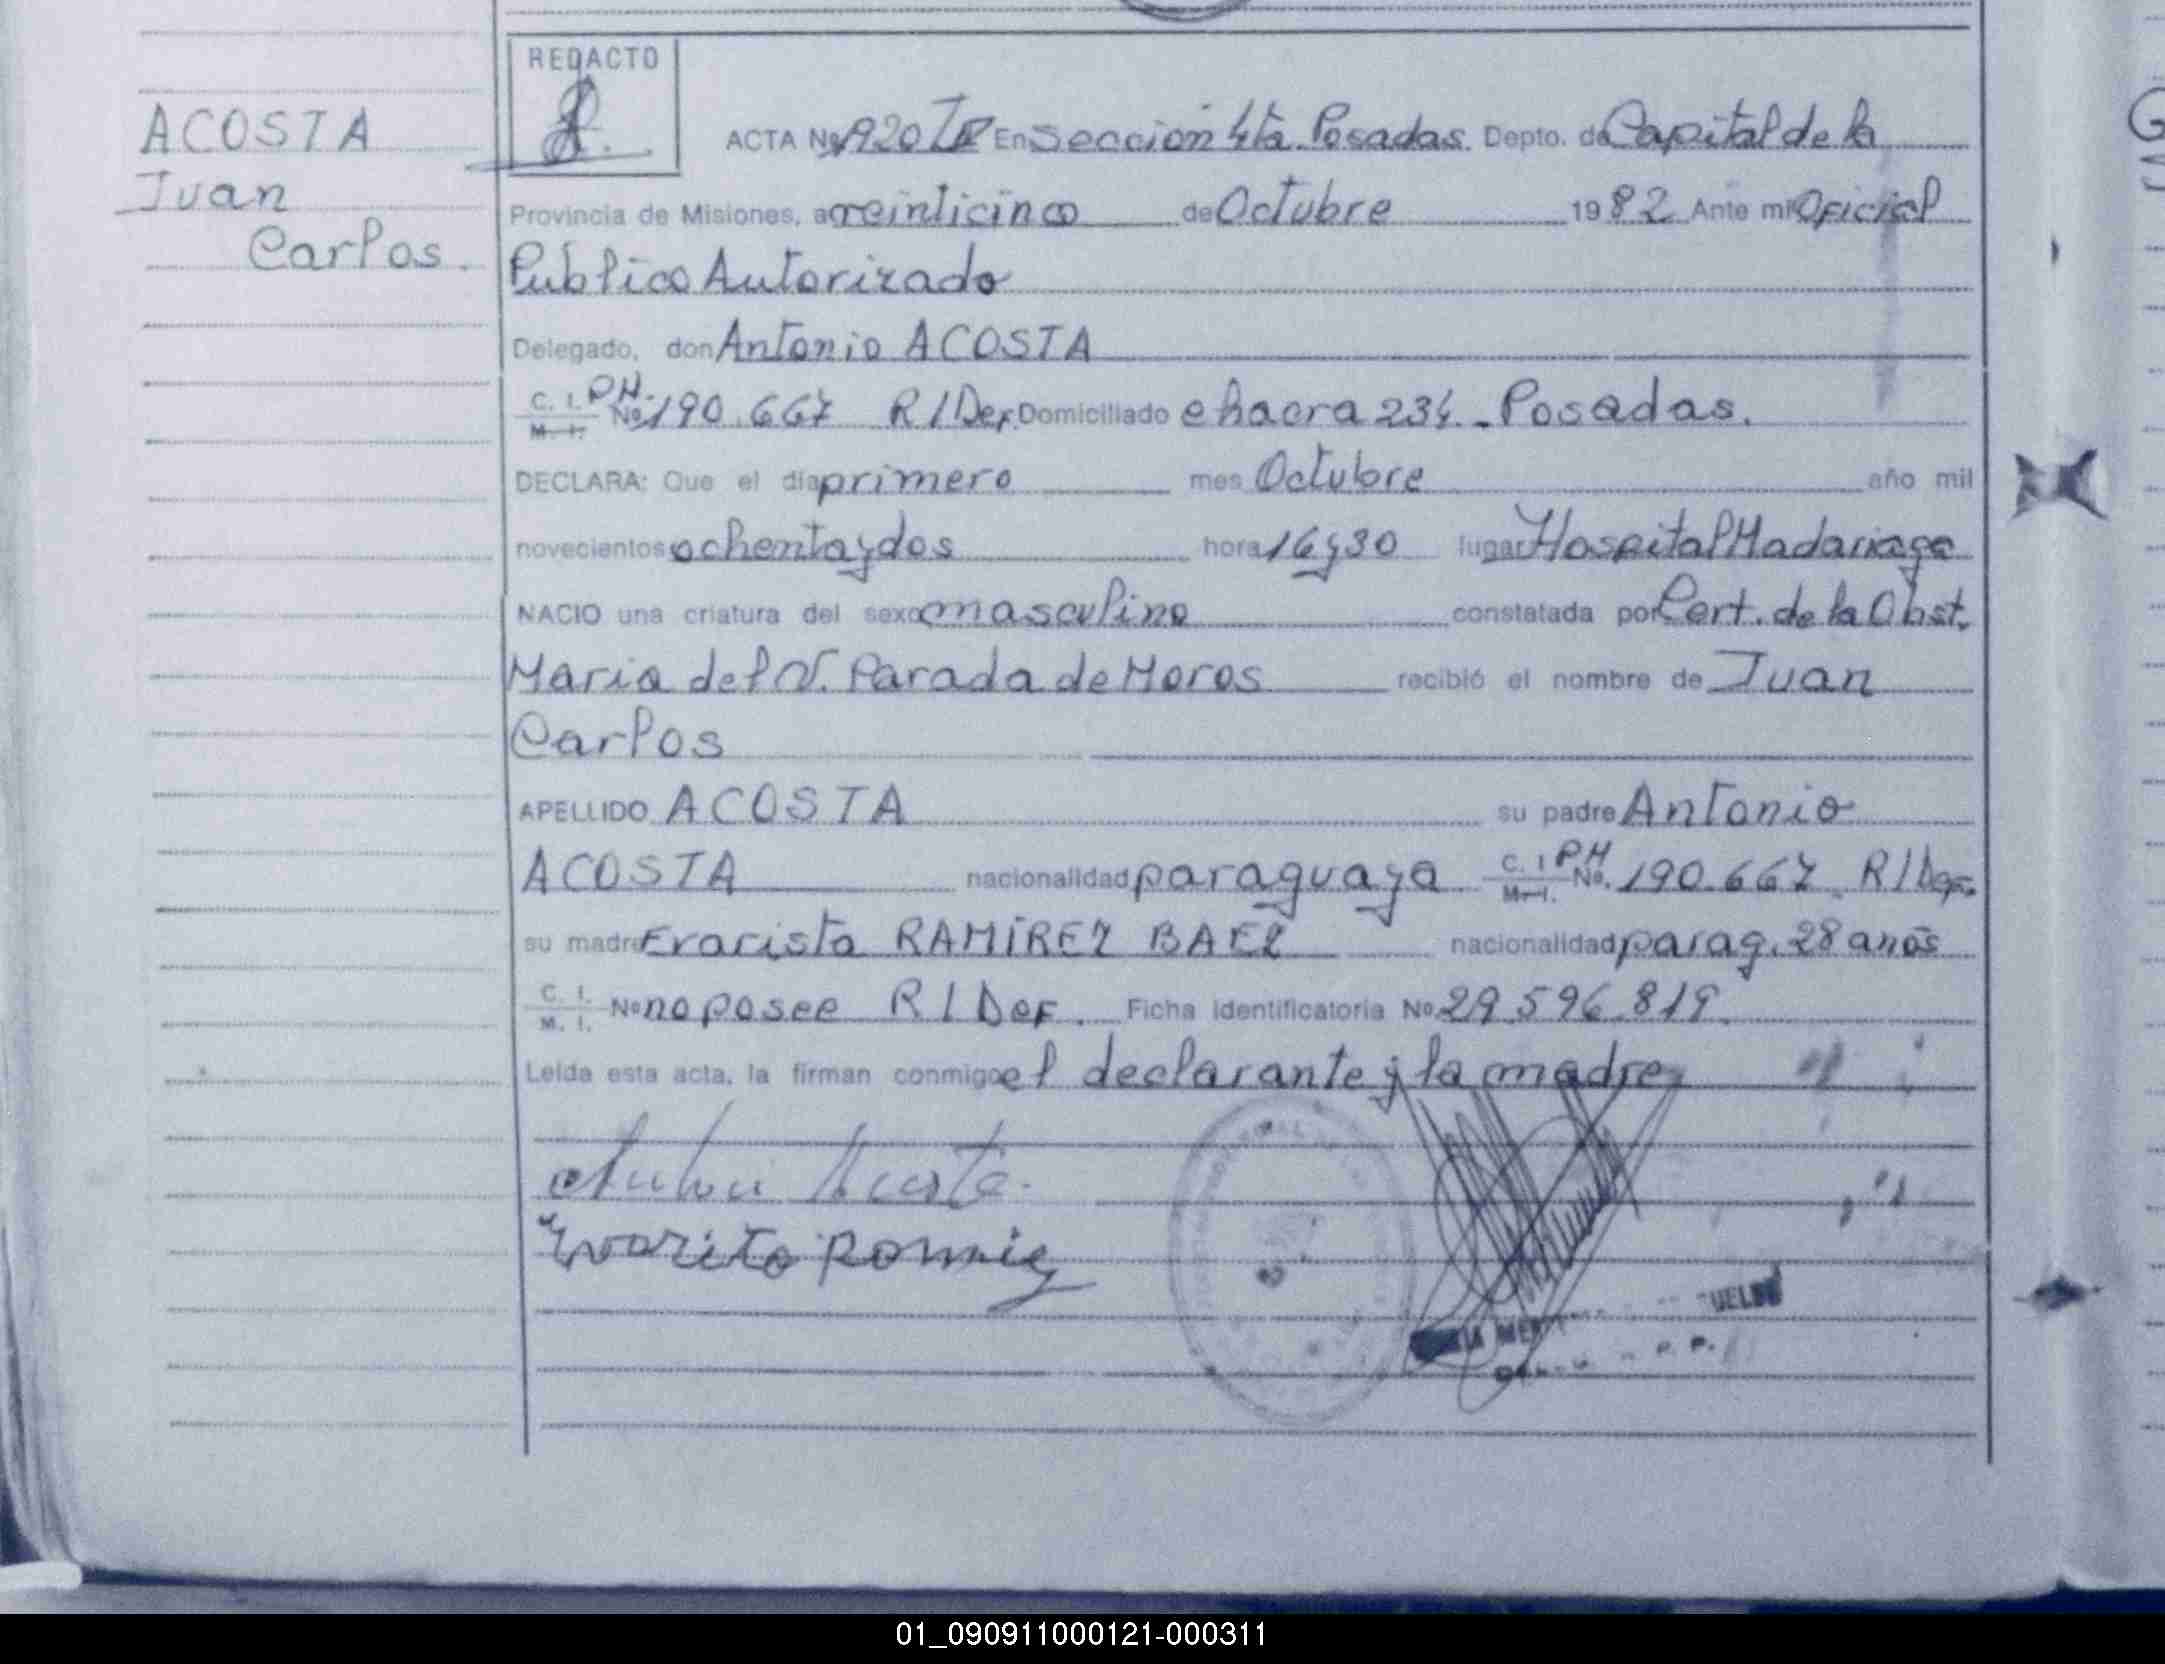 REDACTO
ACOSTA
Juan
Carlos.
ACTA No 1920 En Sección 4ta. Posadas. Depto. de Capital de la
Provincia de Misiones, a veinticinco de Octubre 1982 Ante mi Oficial
Público Autorizado
Delegado, don Antonio ACOSTA
C. I. P.N. No. 190.667 R/Def. Domiciliado chacra 234. - Posadas.
M. I.
DECLARA: Que el día primero mes Octubre año mil
novecientos ochenta y dos hora 16 y 30 lugar Hospital Madariaga
NACIO una criatura del sexo masculino constatada por Cert. de la Obst.
Maria del V. Parada de Moros recibió el nombre de Juan
Carlos
APELLIDO ACOSTA su padre Antonio
ACOSTA nacionalidad paraguaya C. I. P.N. No. 190.667 R/Def.
M. I.
su madre Evarista RAMÍREZ BAEZ nacionalidad parag. 28 años
C. I. No no posee R/Def. Ficha Identificatoria No 29.596.819.
M. I.
Leída esta acta, la firman conmigo el declarante y la madre
Acosta.
01_090911000121-000311